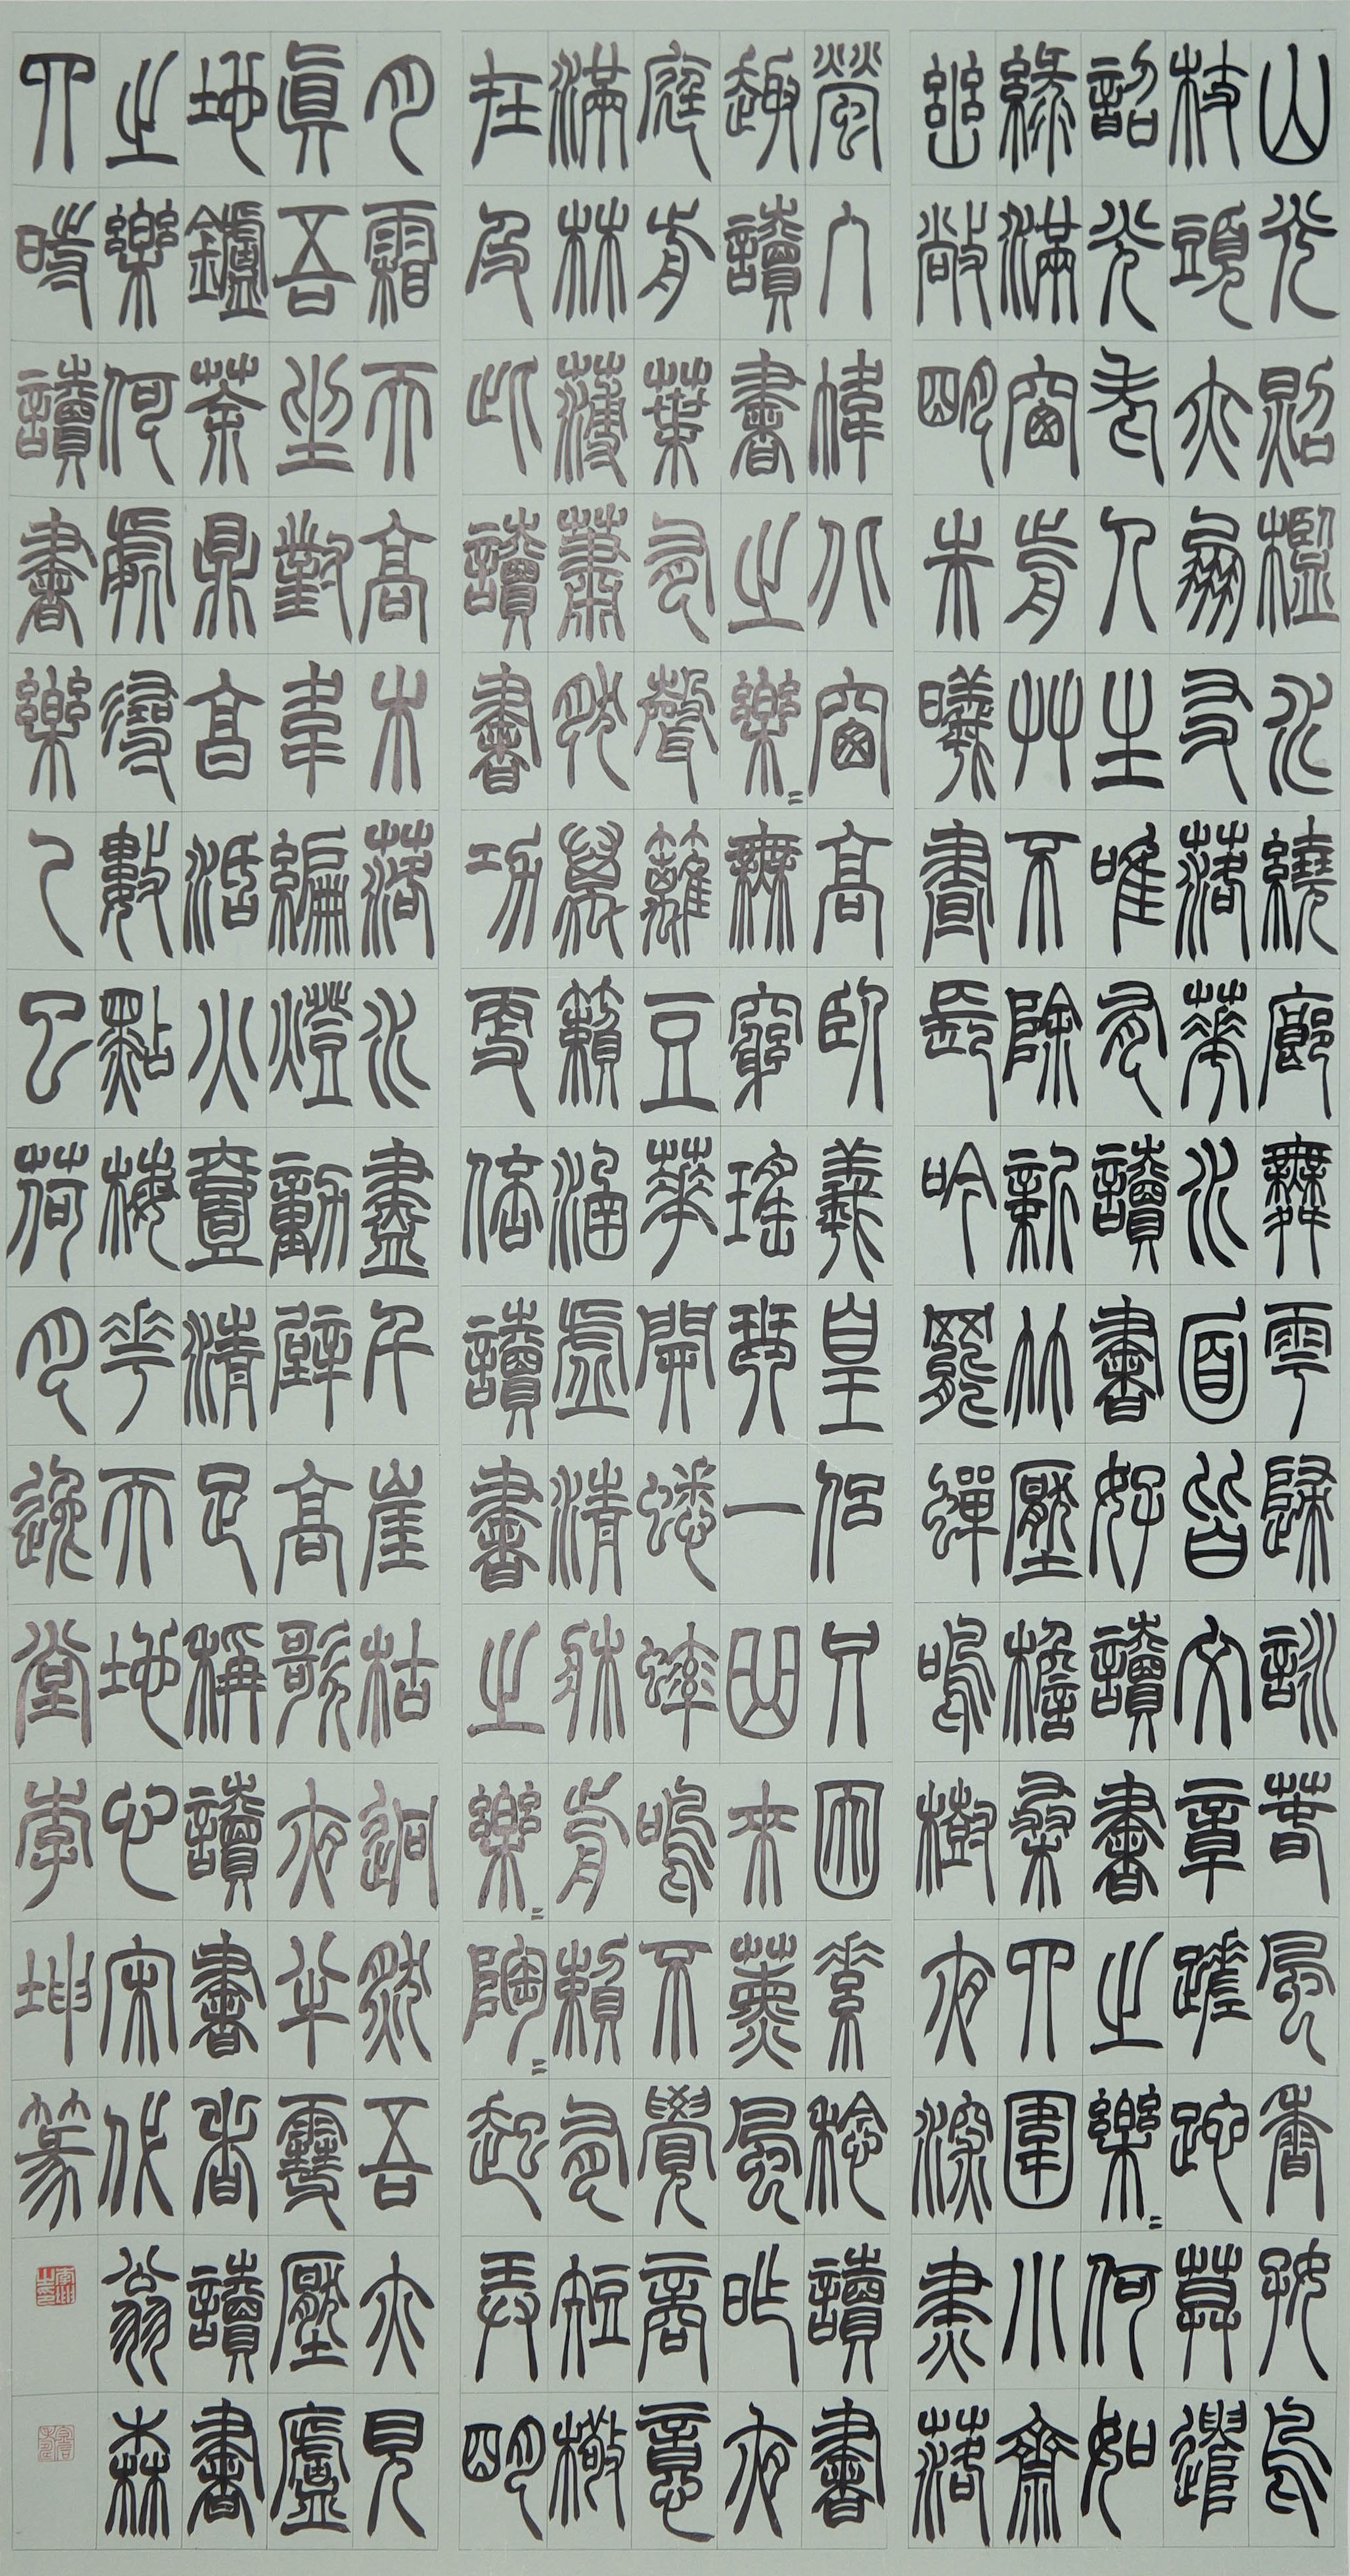 山光照檻水繞廊舞雩歸詠春風香好鳥
枝頭亦朋友落花水面皆文章蹉跎莫遣
韶光老人生唯有讀書好讀書之樂〻何如
綠滿窗前草不除新竹壓檐桑四圍小齋
幽敞明朱曦晝長吟罷蟬鳴樹夜深燼落
螢入幃北窗高臥羲皇侶只因素稔讀書
趣讀書之樂〻無窮瑤琴一曲來薰風昨夜
庭前葉有聲籬豆花開蟋蟀鳴不覺商意
滿林薄蕭然萬籟涵虛清牀前賴有短檠
在及此讀書功更倍讀書之樂〻陶〻起弄明
月霜天高木落水盡千崖枯迥然吾亦見
真吾坐對韋編燈動壁高歌夜半雪壓廬
地鑪茶鼎烹活火壹清足稱讀書者讀書
之樂何處尋數點梅花天地心宋代翁森
四時讀書樂乙巳荷月逸堂李坤篆